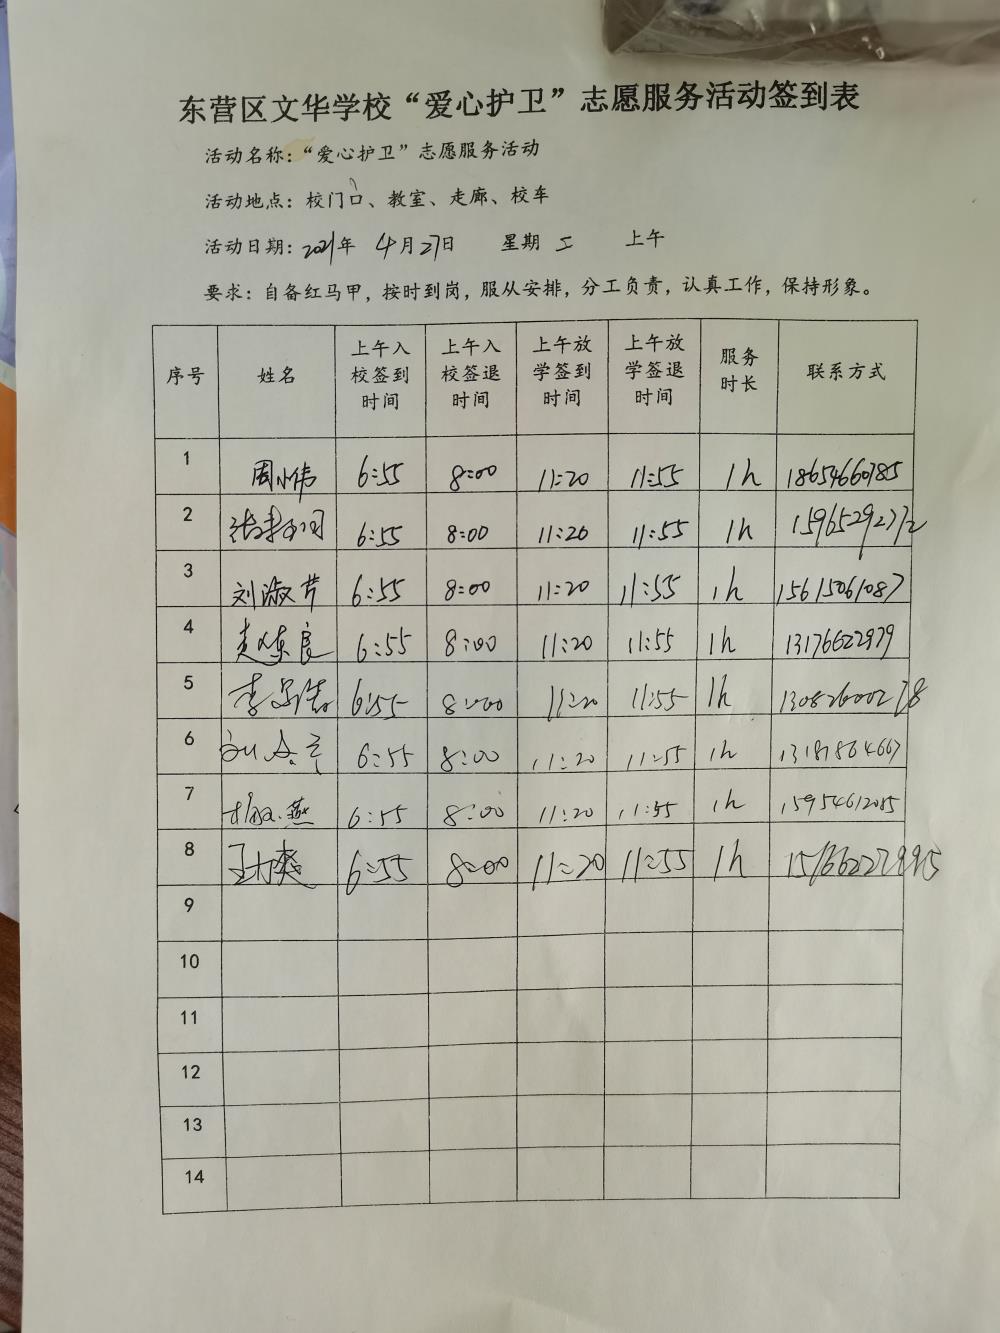 东营区文华学校“爱心护卫”志愿服务活动签到表
活动名称：“爱心护卫”志愿服务活动
活动地点：校门口、教室、走廊、校车
活动日期：2021年 4月27日 星期二 上午
要求：自备红马甲，按时到岗，服从安排，分工负责，认真工作，保持形象。
序号 姓名 上午入校签到时间 上午入校签退时间 上午放学签到时间 上午放学签退时间 服务时长 联系方式
1 周小伟 6:55 8:00 11:20 11:55 1h 18654660785
2 6:55 8:00 11:20 11:55 1h 15965292772
3 刘淑芹 6:55 8:00 11:20 11:55 1h 15615061087
4 6:55 8:00 11:20 11:55 1h 13176622979
5 6:55 8:00 11:20 11:55 1h 13082600278
6 6:55 8:00 11:20 11:55 1h 13181864667
7 6:55 8:00 11:20 11:55 1h 15954612085
8 6:55 8:00 11:20 11:55 1h
9
10
11
12
13
14